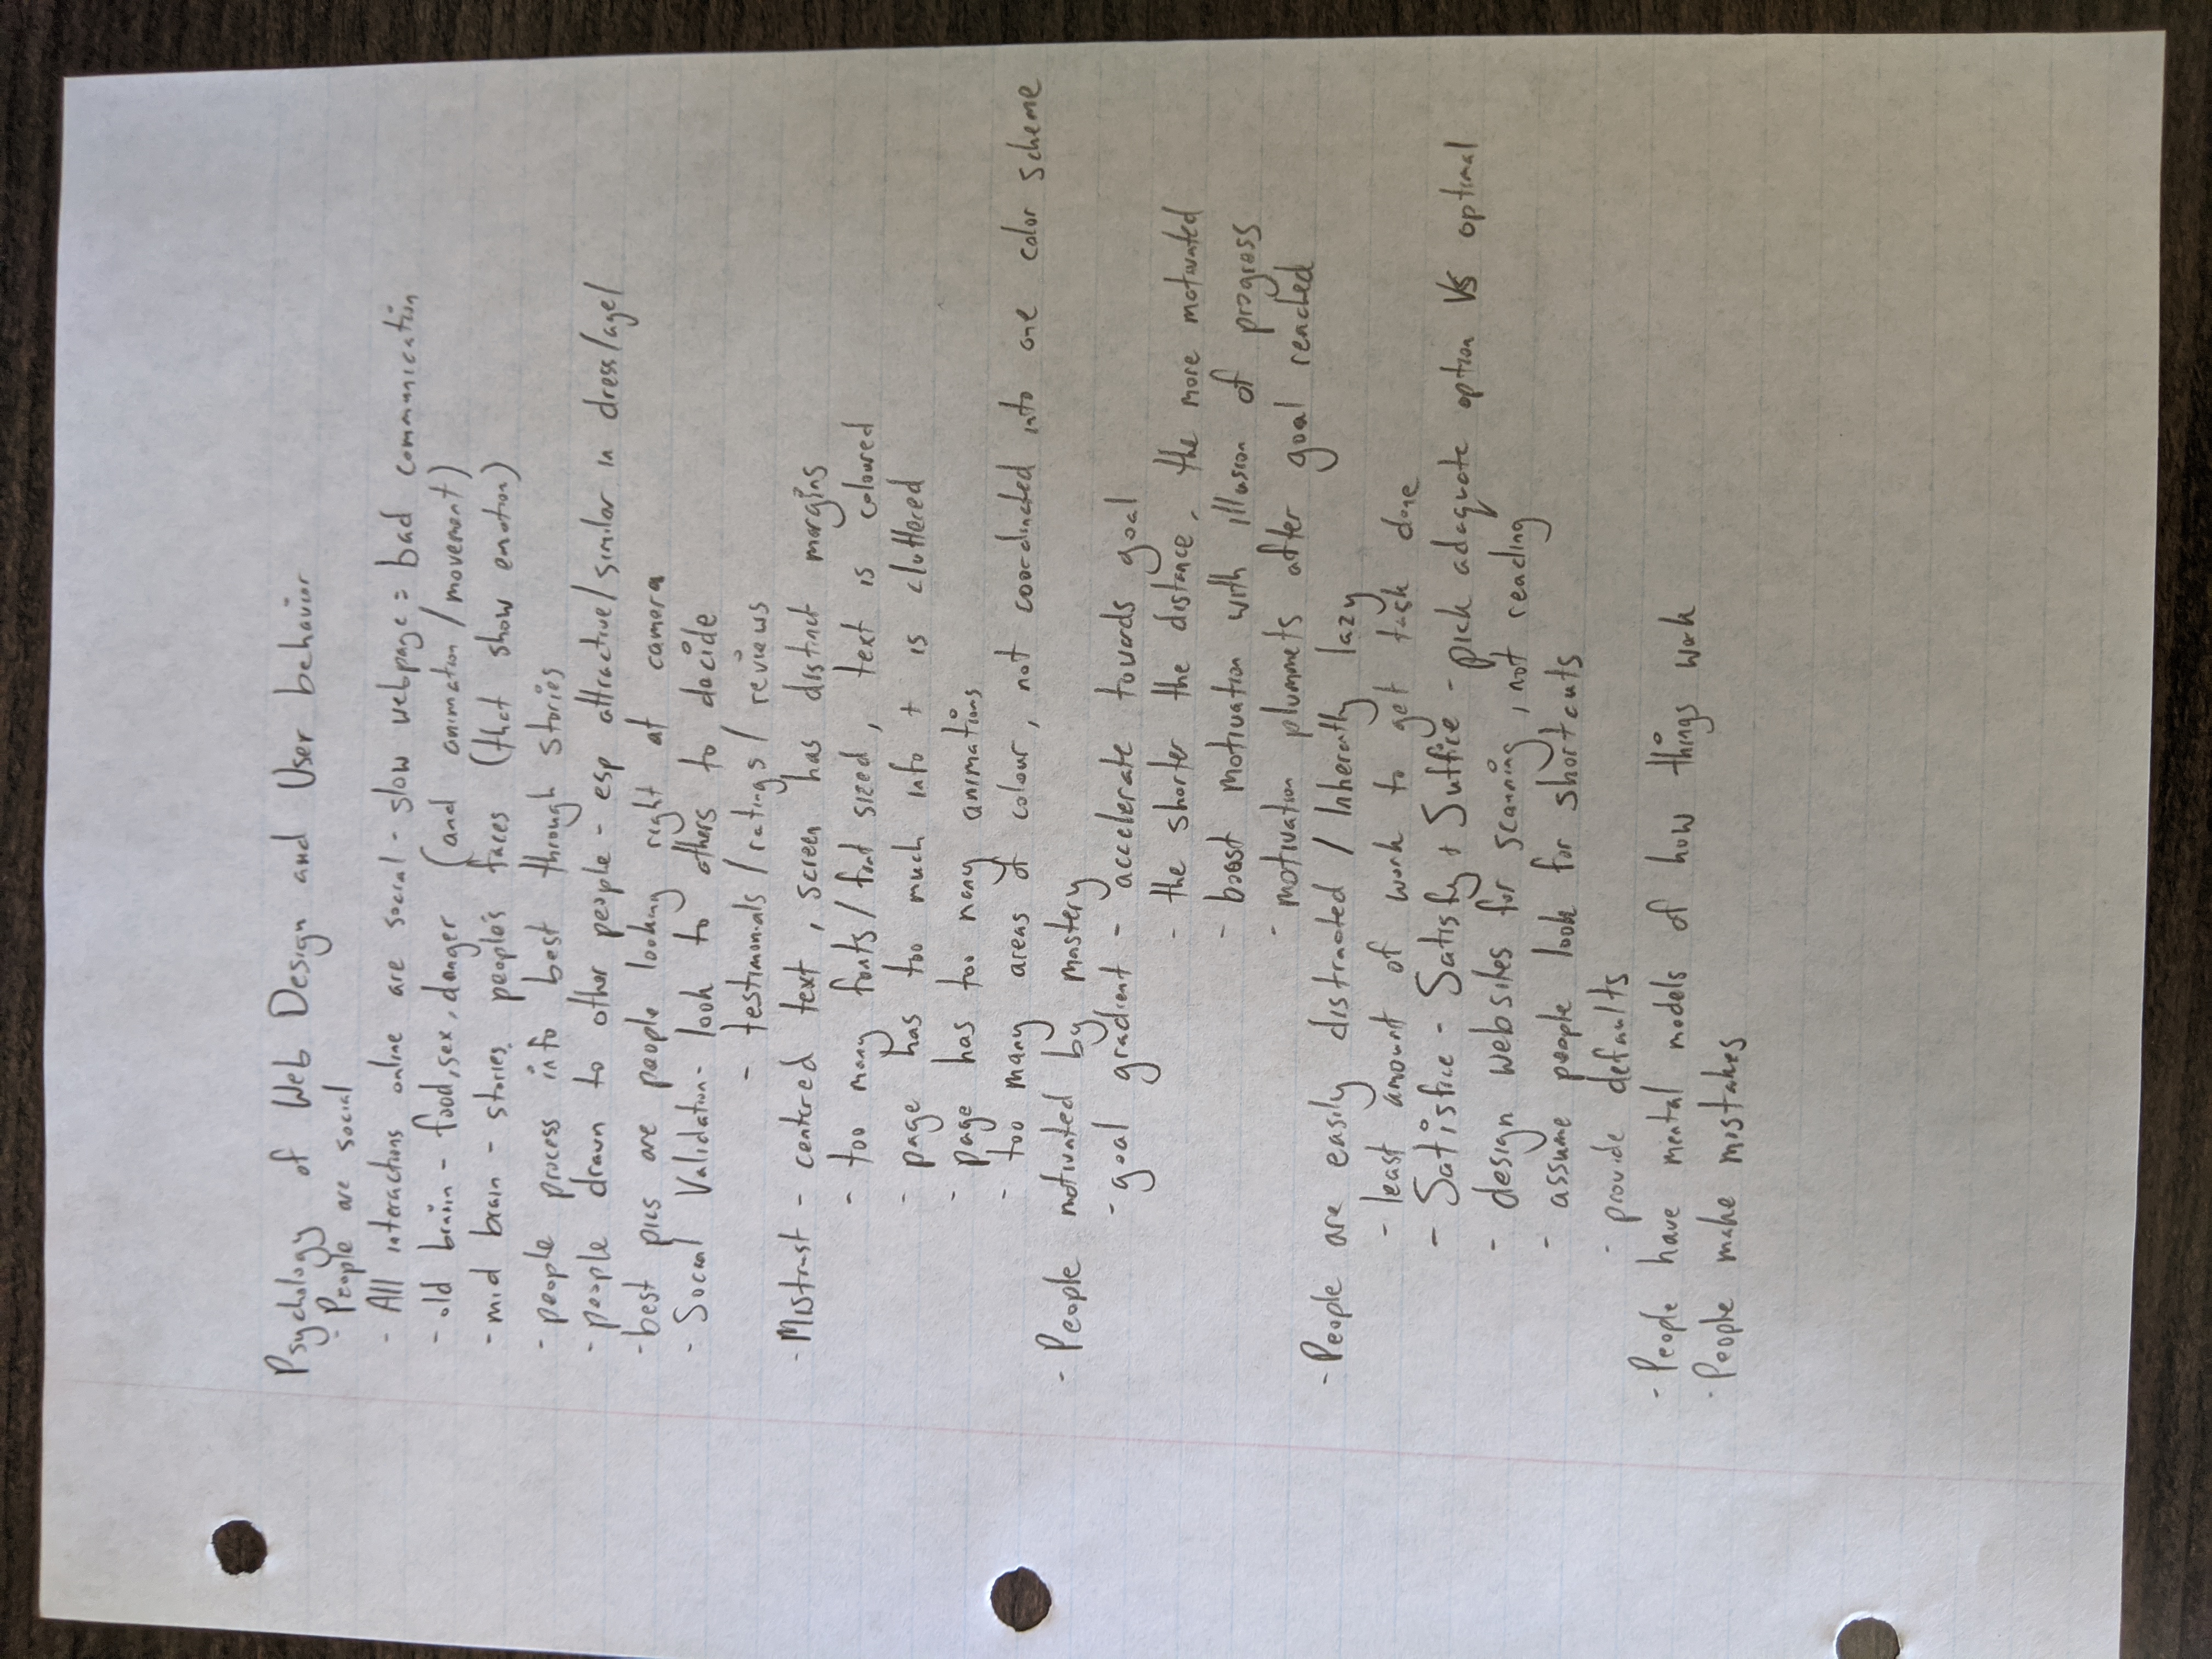 Psychology of Web Design and User behavior
- People are social
- All interactions online are social - slow webpage = bad communication
- old brain - food, sex, danger (and animation / movement)
- mid brain - stories, people's faces (that show emotion)
- people process info best through stories
- people drawn to other people - esp attractive/similar in dress/age/
- best pics are people looking right at camera
- Social Validation - look to others to decide
- testimonials / ratings / reviews
- Mistrust - centered text, screen has distinct margins
- too many fonts / font sized, text is coloured
- page has too much info + is cluttered
- page has too many animations
- too many areas of colour, not coordinated into one color scheme
- People motivated by mastery
- goal gradient - accelerate towards goal
- the shorter the distance, the more motivated
- boost motivation with illusion of progress
- motivation plummets after goal reached
- People are easily distracted / Inherently lazy
- least amount of work to get task done
- Satisfice - Satisfy + Suffice - pick adequate option VS optimal
- design websites for scanning, not reading
- assume people look for shortcuts
- provide defaults
- People have mental models of how things work
- People make mistakes